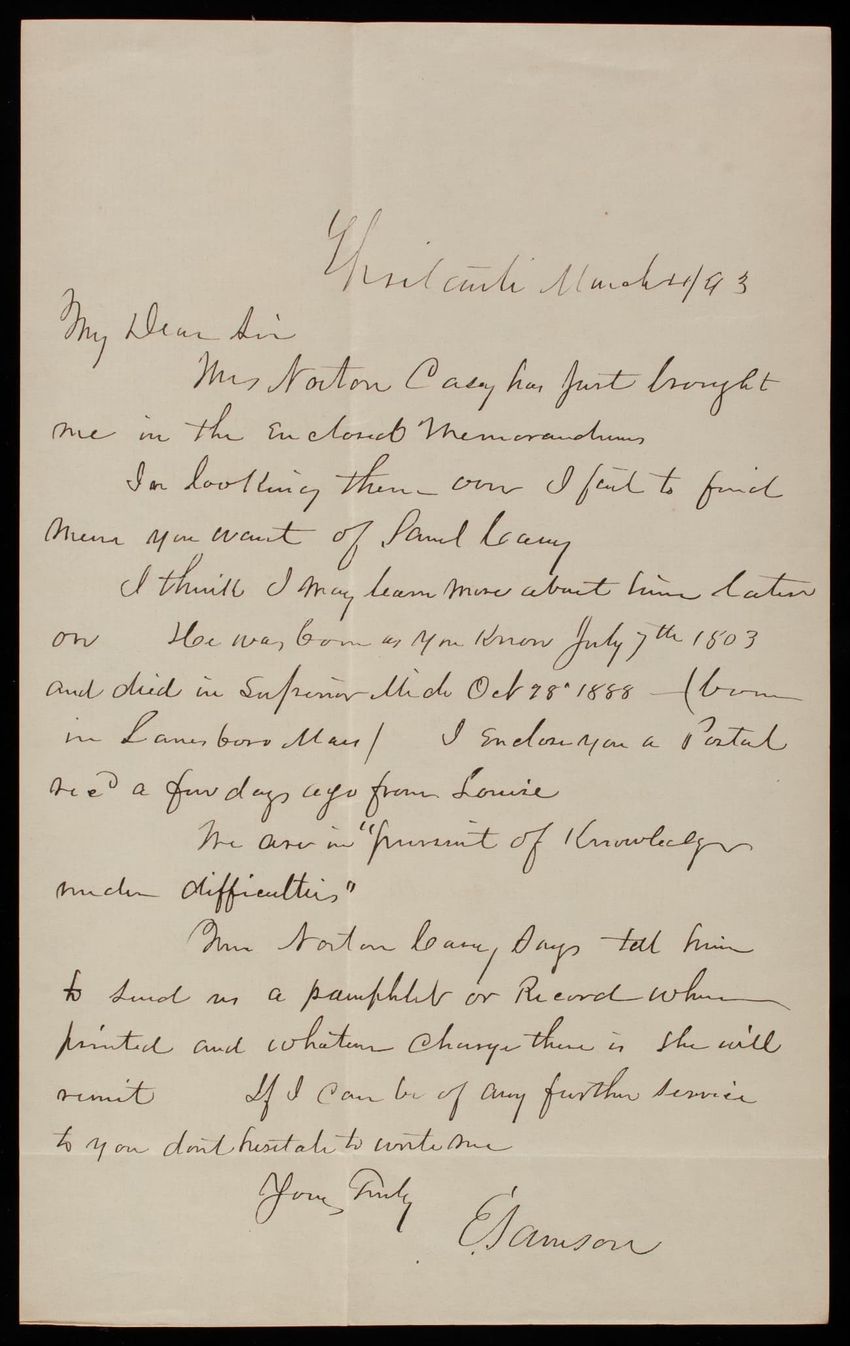 Ypsilanti March /93
My Dear Sir
Mrs Norton Casey has just brought
me in the Enclosed Memorandums
In looking them over I fail to find
more you want of Saml Casey
I think I may learn more about him later
on He was born as you Know July 7th 1803
and died in Superior Mich Oct 28" 1888 — (born
in Lanesboro Mass) I Enclose you a Postal
recd a few days ago from Louise
We are in "pursuit of Knowledge
under difficulties"
Mrs Norton Casey Says tell him
to send us a pamphlet or Record when
printed and whatever charge there is she will
remit If I can be of any further service
to you dont hesitate to write me
Yours Truly
E Samson